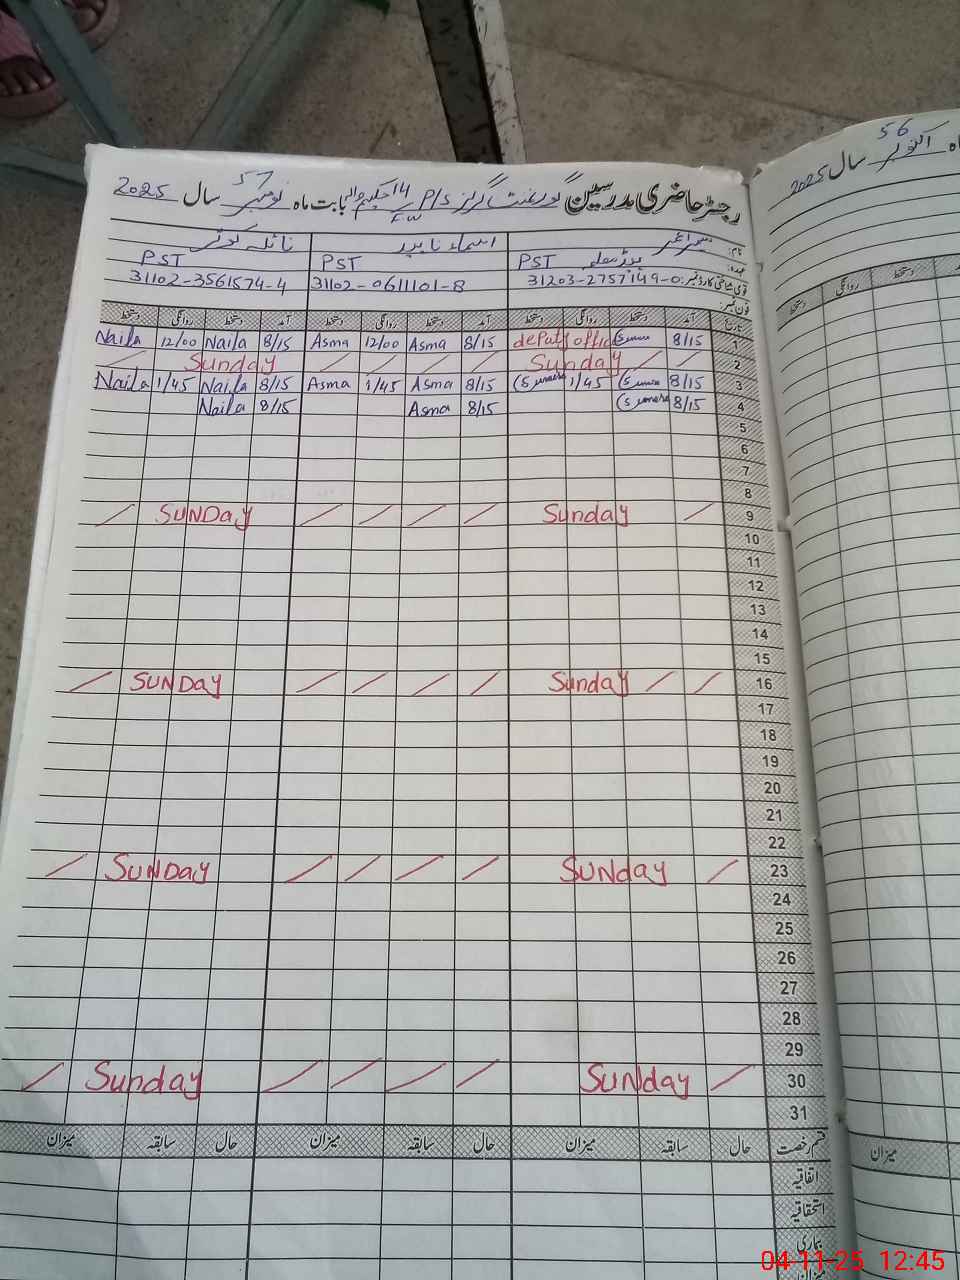 رجسٹر حاضری مدرسین گورنمنٹ گرلز P/S 14 حکیم والہ بابت ماہ نومبر 57 سال 2025
نام:
عہدہ: PST PST PST
قومی شناختی کارڈ نمبر: 31203-2757149-0 31102-0611101-8 31102-3561574-4
فون نمبر:
تاریخ آمد دستخط روانگی دستخط آمد دستخط روانگی دستخط آمد دستخط روانگی دستخط
1 8/15 deputy offic 8/15 Asma 12/00 Asma 8/15 Naila 12/00 Naila
2 Sunday Sunday
3 8/15 1/45 8/15 Asma 1/45 Asma 8/15 Naila 1/45 Naila
4 8/15 8/15 Asma 8/15 Naila
5
6
7
8
9 Sunday SUNDay
10
11
12
13
14
15
16 Sunday SUNDay
17
18
19
20
21
22
23 SUNday SUNDay
24
25
26
27
28
29
30 SUNday Sunday
31
قسم رخصت حال سابقہ میزان حال سابقہ میزان حال سابقہ میزان
اتفاقیہ
استحقاقیہ
بیماری
میزان
56
ماہ اکتوبر سال 2025
روانگی دستخط
دستخط
میزان
04-11-25 12:45